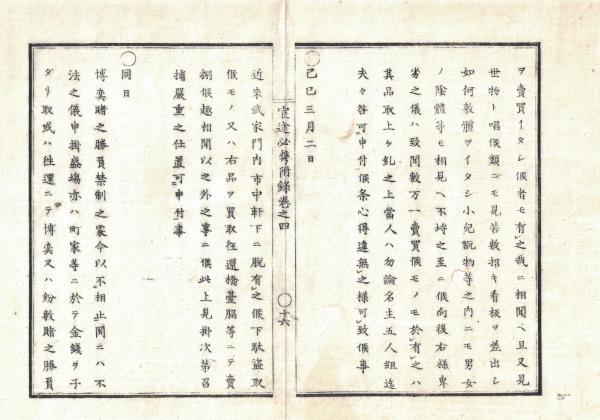 ヲ賣買イタシ候者モ有之哉ニ相聞ヘ且又見
世物ト唱候類ニモ見苦敷招キ看板ヲ差出シ
如何敷體ヲイタシ小兒翫物等之内ニモ男女
ノ陰體等モ相見ヘ不埒之至ニ候向後右樣卑
劣之儀ハ致間敷万一賣買候モノモ於有之ハ
其品取上ケ糺之上當人ハ勿論名主五人組迄
夫々咎可申付候条心得違無之樣可致候事
○己巳三月二日
近來武家門内市中軒下ニ脱有之候下駄盗取
候モノ又ハ右品ヲ買取往還橋臺脇等ニテ賣
捌候趣相聞以之外之事ニ候此上見掛次第召
捕嚴重之仕置可申付事
○同日
博奕賭之勝負禁制之處今以不相止聞ニハ不
法之儀申掛盛場亦ハ町家等ニ於テ金錢ヲ子
ダリ取或ハ往還ニテ博奕又ハ紛敷賭之勝負
官途必携附錄卷之四
○十六